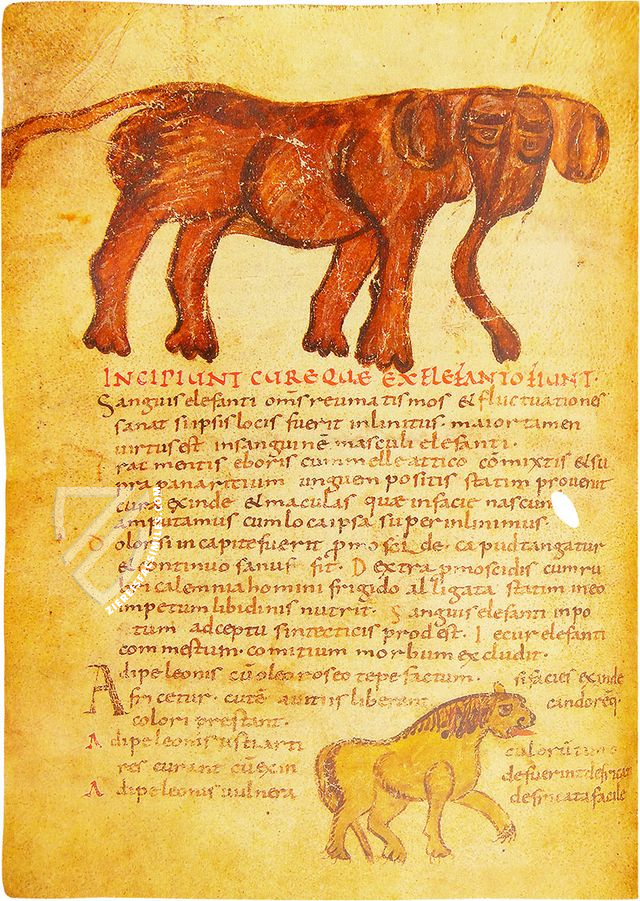 INCIPIUNT CURE QUE EX ELEFANTO FIUNT.
Sanguis elefanti om̄s reumatismos et fluctuationes
sanat si ipsis locis fuerit inlinitus. maior tamen
virtus est in sanguine masculi elefanti.
rat mentis eboris cum melle attico cōmixtis et su
pra panaritium unguem positis statim provenit
cura exinde et maculas quae in facie nascun
amputamus cum loca ipsa superinlinimus.
Dolor si in capite fuerit p̄moscide caput tangatur
et continuo sanus fit. Dextra p̄moscidis cum ru
bri ca lemnia homini frigido alligata statim in eo
impetum libidinis nutrit. Sanguis elefanti inpo
tum adceptus intecticis prodest. Iecur elefanti
commestum. comitium morbum excludit.
Adipe leonis cū oleo roseo tepefactum. si facies exinde
fricetur. cutē a vitiis liberant candoreq.
colori prestant.
Adipe leonis usti arti culorū
res curant cū ex in de fuerint defrican
Adipe leonis vulnera defricata facile
ZIEREIS FACSIMILES.COM